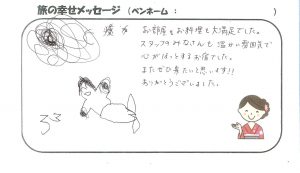 旅の幸せメッセージ （ペンネーム： ）
お部屋もお料理も大満足でした。
スタッフみなさんも温かい雰囲気で
心がほっとするお宿でした。
またぜひ来たいと思います!!
ありがとうございました。